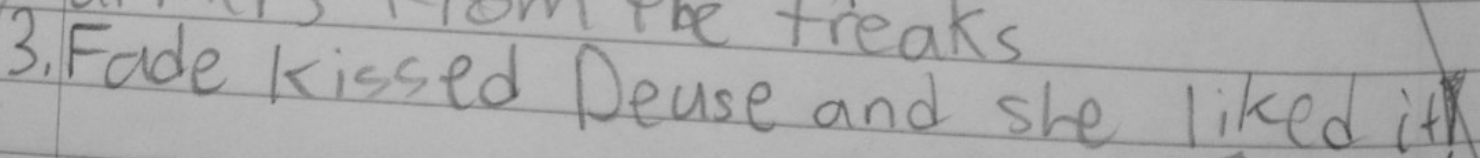 from the freaks
3. Fade kissed Deuse and she liked it